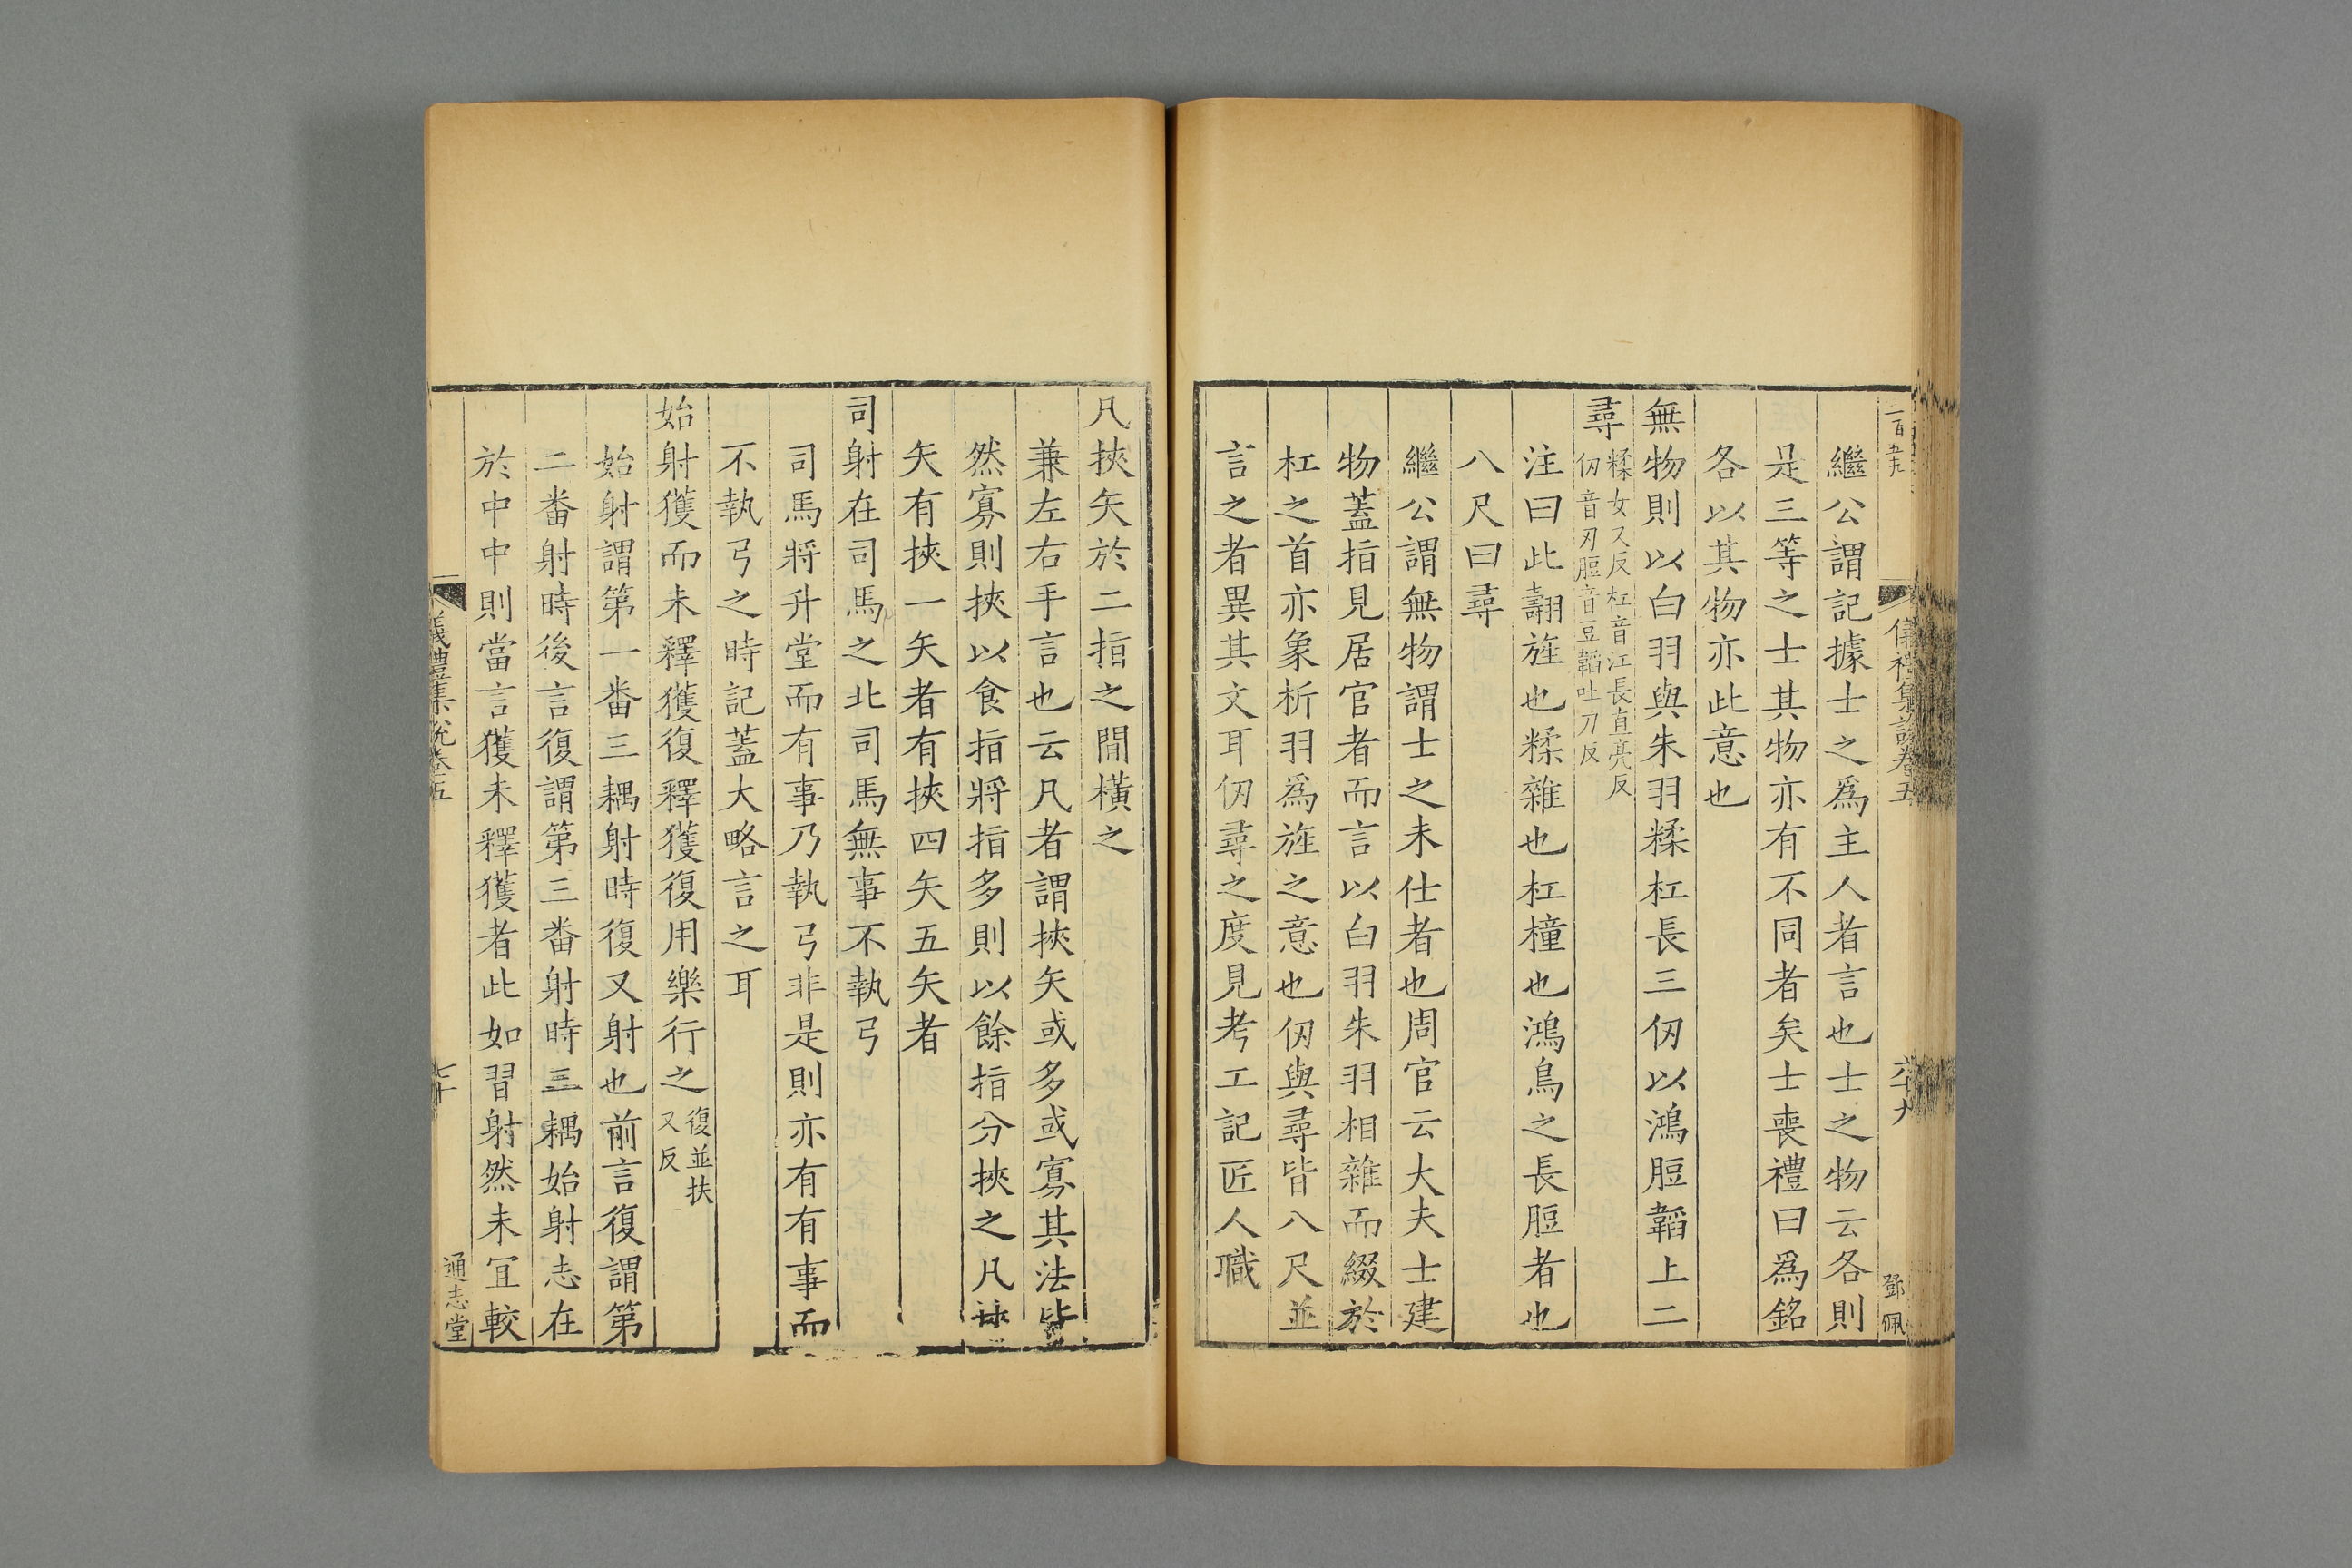 一百五九
儀禮集說卷五
六十九
鄧佩
繼公謂記據士之爲主人者言也士之物云各則
是三等之士其物亦有不同者矣士喪禮曰爲銘
各以其物亦此意也
無物則以白羽與朱羽糅杠長三仞以鴻脰韜上二
尋
糅女又反杠音江長直亮反
仞音刃脰音豆韜吐刀反
注曰此翿旌也糅雜也杠橦也鴻鳥之長脰者也
八尺曰尋
繼公謂無物謂士之未仕者也周官云大夫士建
物蓋指見居官者而言以白羽朱羽相雜而綴於
杠之首亦象析羽爲旌之意也仞與尋皆八尺並
言之者異其文耳仞尋之度見考工記匠人職
凡挾矢於二指之閒橫之
兼左右手言也云凡者謂挾矢或多或寡其法皆
然寡則挾以食指將指多則以餘指分挾之凡挾
矢有挾一矢者有挾四矢五矢者
司射在司馬之北司馬無事不執弓
司馬將升堂而有事乃執弓非是則亦有有事而
不執弓之時記蓋大略言之耳
始射獲而未釋獲復釋獲復用樂行之
復並扶
又反
始射謂第一番三耦射時復又射也前言復謂第
二番射時後言復謂第三番射時三耦始射志在
於中中則當言獲未釋獲者此如習射然未宜較
儀禮集說卷五
七十
通志堂